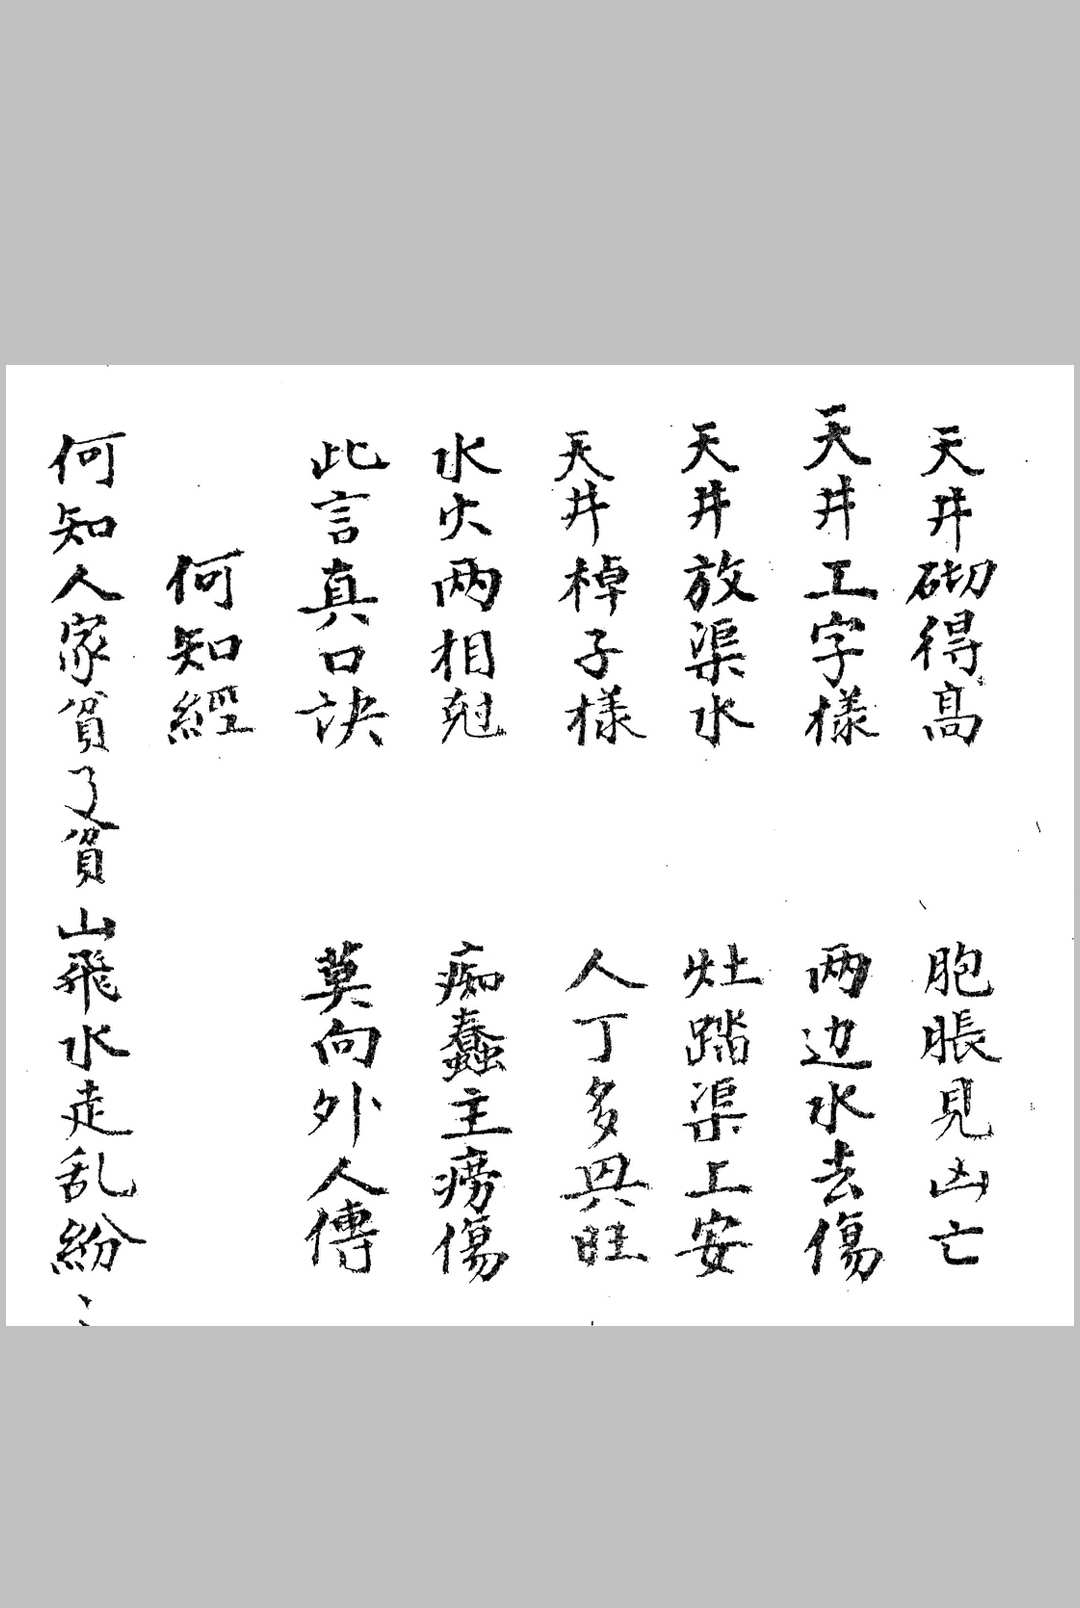 天井砌得高 胞脹見凶亡
天井工字樣 两边水去傷
天井放渠水 灶踏渠上安
天井棹子樣 人丁多興旺
水火两相尅 痴蠢主癆傷
此言真口訣 莫向外人傳
何知經
何知人家貧了貧山飛水走乱紛〻